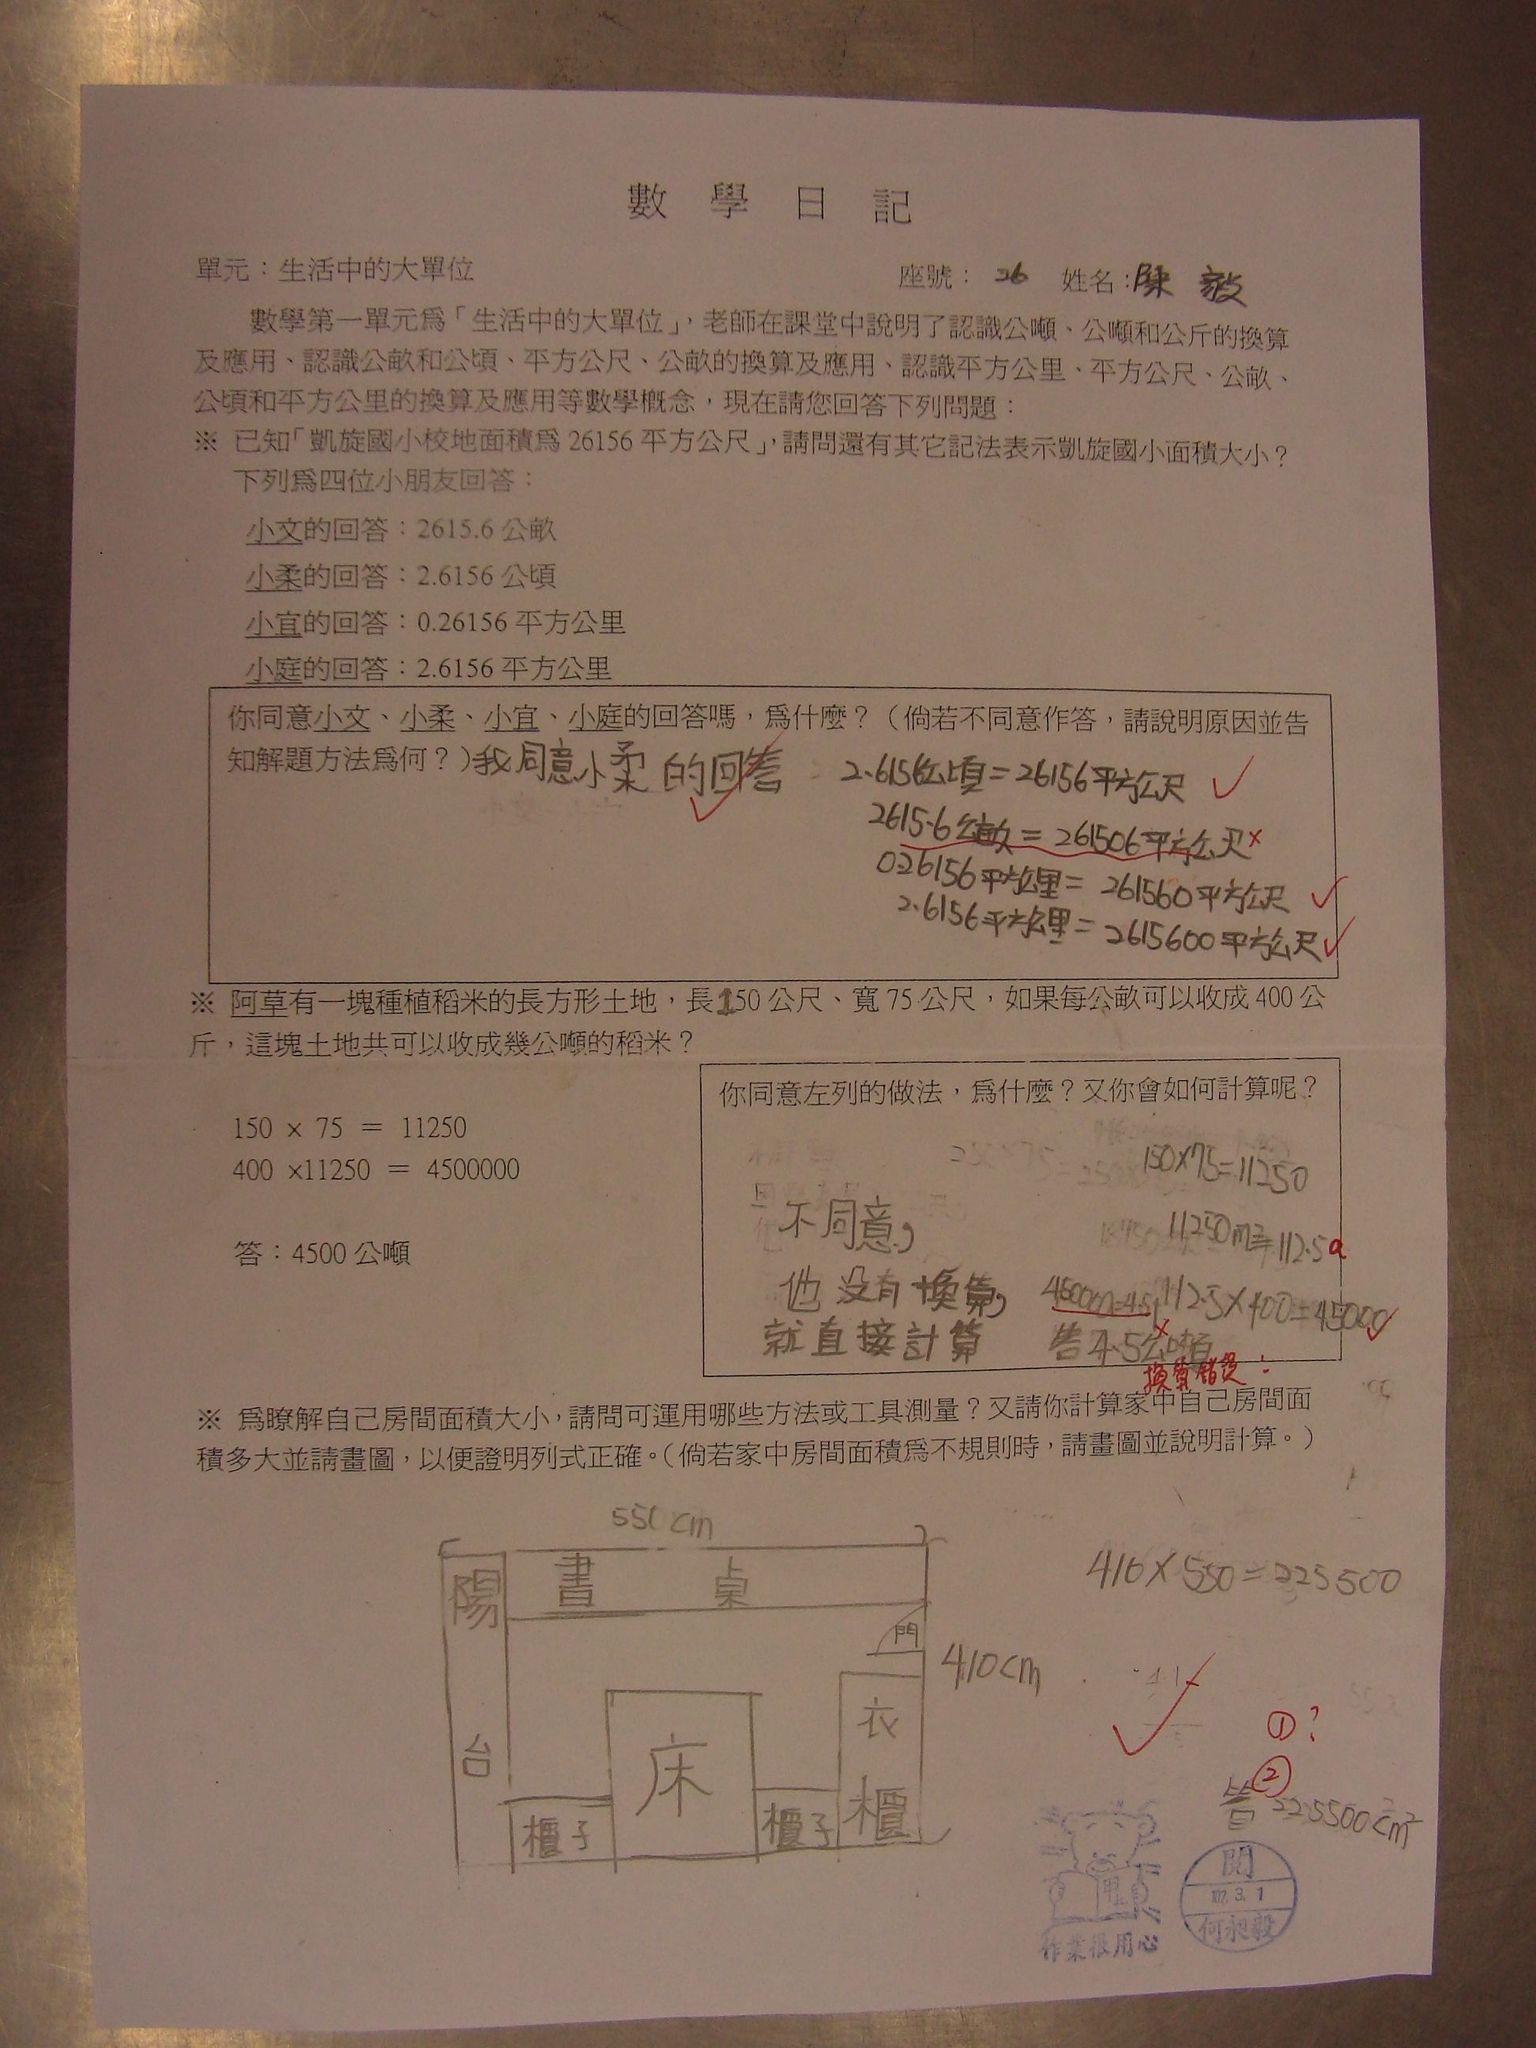 數學日記
單元：生活中的大單位 座號：26 姓名：陳 毅
數學第一單元為「生活中的大單位」，老師在課堂中說明了認識公噸、公噸和公斤的換算
及應用、認識公畝和公頃、平方公尺、公畝的換算及應用、認識平方公里、平方公尺、公畝、
公頃和平方公里的換算及應用等數學概念，現在請您回答下列問題：
※ 已知「凱旋國小校地面積為 26156 平方公尺」，請問還有其它記法表示凱旋國小面積大小？
下列為四位小朋友回答：
小文的回答：2615.6 公畝
小柔的回答：2.6156 公頃
小宜的回答：0.26156 平方公里
小庭的回答：2.6156 平方公里
你同意小文、小柔、小宜、小庭的回答嗎，為什麼？（倘若不同意作答，請說明原因並告
知解題方法為何？）我同意小柔的回答 2.6156公頃=26156平方公尺
2615.6公畝=261506平方公尺
0.26156平方公里=261560平方公尺
2.6156平方公里=2615600平方公尺
※ 阿草有一塊種植稻米的長方形土地，長150公尺、寬75公尺，如果每公畝可以收成400公
斤，這塊土地共可以收成幾公噸的稻米？
150 × 75 ＝ 11250
400 ×11250 ＝ 4500000
答：4500公噸
你同意左列的做法，為什麼？又你會如何計算呢？
150×75=11250
不同意， 11250m²=112.5a
他沒有換算， 112.5×400=45000
就直接計算 答4.5公噸
換算錯誤！
※ 為瞭解自己房間面積大小，請問可運用哪些方法或工具測量？又請你計算家中自己房間面
積多大並請畫圖，以便證明列式正確。（倘若家中房間面積為不規則時，請畫圖並說明計算。）
550cm
陽台 書桌
410×550=225500
門
410cm
衣櫃
床
櫃子 櫃子
①？
②
答 225500cm²
作業很用心
閱
102.3.1
何昶毅